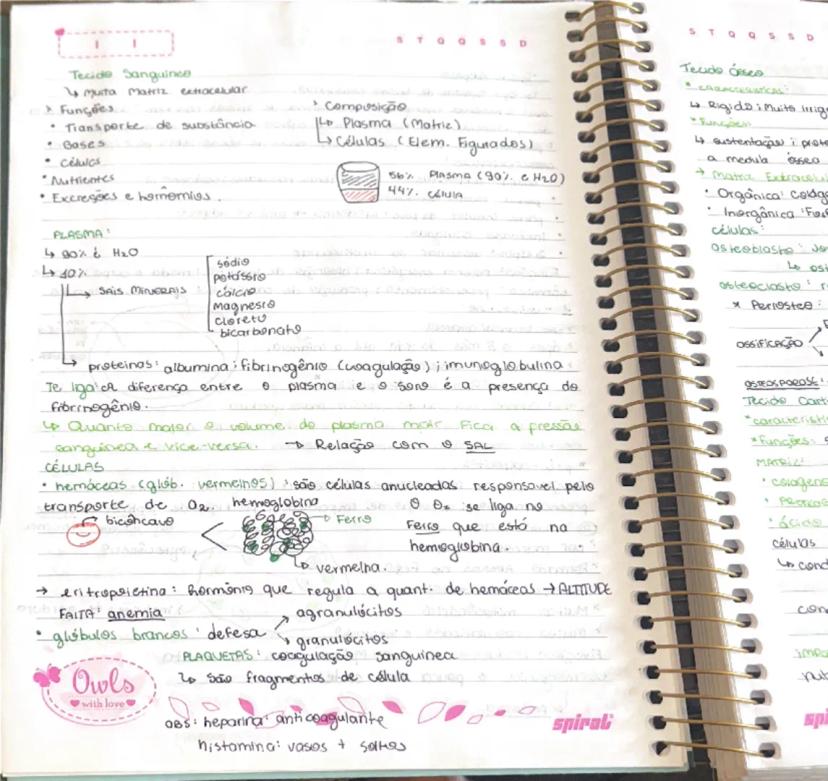 S T Q Q S S D
Tecido Sanguíneo
↳ Muita Matriz extracelular
> Funções
• Transporte de substância
• Gases
• Células
• Nutrientes
• Excreções e hormônios.
> Composição
↳ Plasma (Matriz)
↳ Células (Elem. Figurados)
56% Plasma (90% é H2O)
44% célula
PLASMA:
↳ 90% é H2O
↳ 10%
↳ SAIS MINERAIS
sódio
potássio
cálcio
magnesio
cloreto
bicarbonato
↳ proteínas: albumina; fibrinogênio (coagulação); imunoglobulina
Te liga: a diferença entre o plasma e o soro é a presença do
fibrinogênio.
↳ Quanto maior o volume do plasma maior fica a pressão
sanguínea e vice-versa. → Relação com o SAL
CÉLULAS
• hemáceas (glób. vermelhos): são células anucleadas responsavel pelo
transporte de O2.
bicôncavo
hemoglobina
Ferro
vermelha.
O O2 se liga no
Ferro que está na
hemoglobina.
→ eritropoietina: hormônio que regula a quant. de hemáceas → ALTITUDE
FALTA: anemia
• glóbulos brancos: defesa
agranulócitos
granulócitos
PLAQUETAS: coagulação sanguínea
↳ São fragmentos de célula
OBS: heparina: anticoagulante
histamina: vasos +
Owls
with love
spiral
S T Q Q S S D
Tecido Ósseo
• características:
↳ Rígido; Muito
• Funções:
↳ sustentação;
a medula óssea
→ Matriz
• Orgânica:
• Inorgânica:
células:
osteoblasto:
osteoclasto:
* Periósteo:
OSSIFICAÇÃO
OSTEOPOROSE:
Tecido
• Funções:
MATRIZ:
células